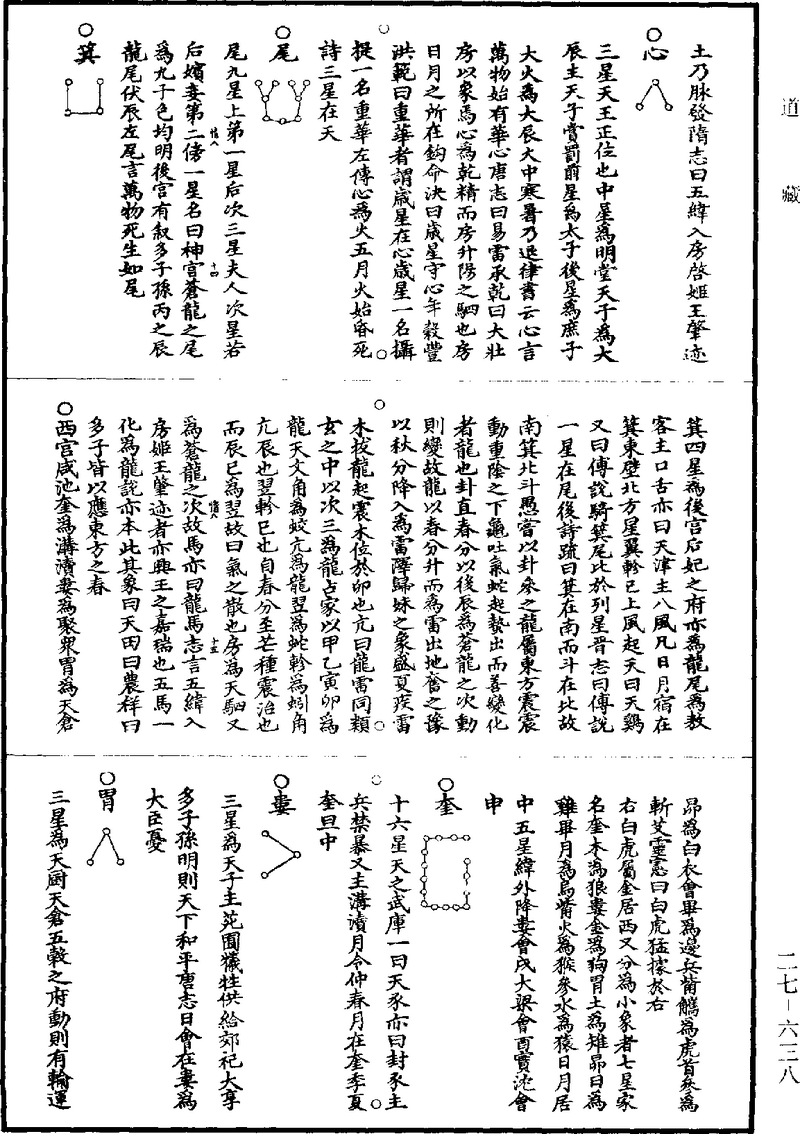 道藏
土乃脉發隋志曰五緯入房啓姬王肇迹
心
三星天王正位也中星為明堂天子為大
辰主天子賞罰前星為太子後星為庶子
大火為大辰大中寒暑乃退律書云心言
萬物始有華心唐志曰易雷承乾曰大壯
房以象焉心為乾精而房升陽之駟也房
日月之所在鈎命決曰歲星守心年穀豐
洪範曰重華者謂歲星在心歲星一名攝
提一名重華左傳心為火五月火始昏死
詩三星在天
尾
尾九星上第一星后次三星夫人次星若
后嬪妾第二傍一星名曰神宫蒼龍之尾
為九子色均明後宫有叙多子孫丙之辰
龍尾伏辰左尾言萬物死生如尾
箕
箕四星為後宫后妃之府亦為龍尾為敖
客主口舌亦曰天津主八風凡日月宿在
箕東壁北方星翼軫已上風起天曰天鷄
又曰傅說騎箕尾比於列星晋志曰傅說
一星在尾後詩疏曰箕在南而斗在北故
南箕北斗愚嘗以卦參之龍屬東方震震
動重陰之下龜吐氣蛇起蟄出而善變化
者龍也卦直春分以後辰為蒼龍之次動
則變故龍以春分升而為雷出地奮之豫
以秋分降入為雷澤歸妹之象盛夏疾雷
木拔龍起震木位於卯也亢曰龍雷同類
玄之中以次三為龍占家以甲乙寅卯為
龍天文角為蛟亢為龍翌為蛇軫為蚓角
亢辰也翌軫巳也自春分至芒種震治也
而辰巳為翌故曰氣之散也房為天駟又
為蒼龍之次故馬亦曰龍馬志言五緯入
房姬王肇迹者亦興王之嘉瑞也五馬一
化為龍說亦本此其象曰天田曰農祥曰
多子皆以應東方之春
西宫咸池奎為溝瀆婁為聚衆胃為天倉
昴為白衣會畢為邊兵觜觿為虎首參為
斬艾靈憲曰白虎猛據於右
右白虎屬金居西又分為小象者七星家
名奎木為狼婁金為狗胃土為雉昴日為
雞畢月為烏觜火為猴參水為猿日月居
中五星緯外降婁會戌大梁會酉實沈會
申
奎
十六星天之武庫一曰天豕亦曰封豕主
兵禁暴又主溝瀆月令仲春月在奎季夏
奎旦中
婁
三星為天子主苑囿犧牲供給郊祀大享
多子孫明則天下和平唐志日會在婁為
大臣憂
胃
三星為天厨天倉五穀之府動則有輸運
二七－六三八